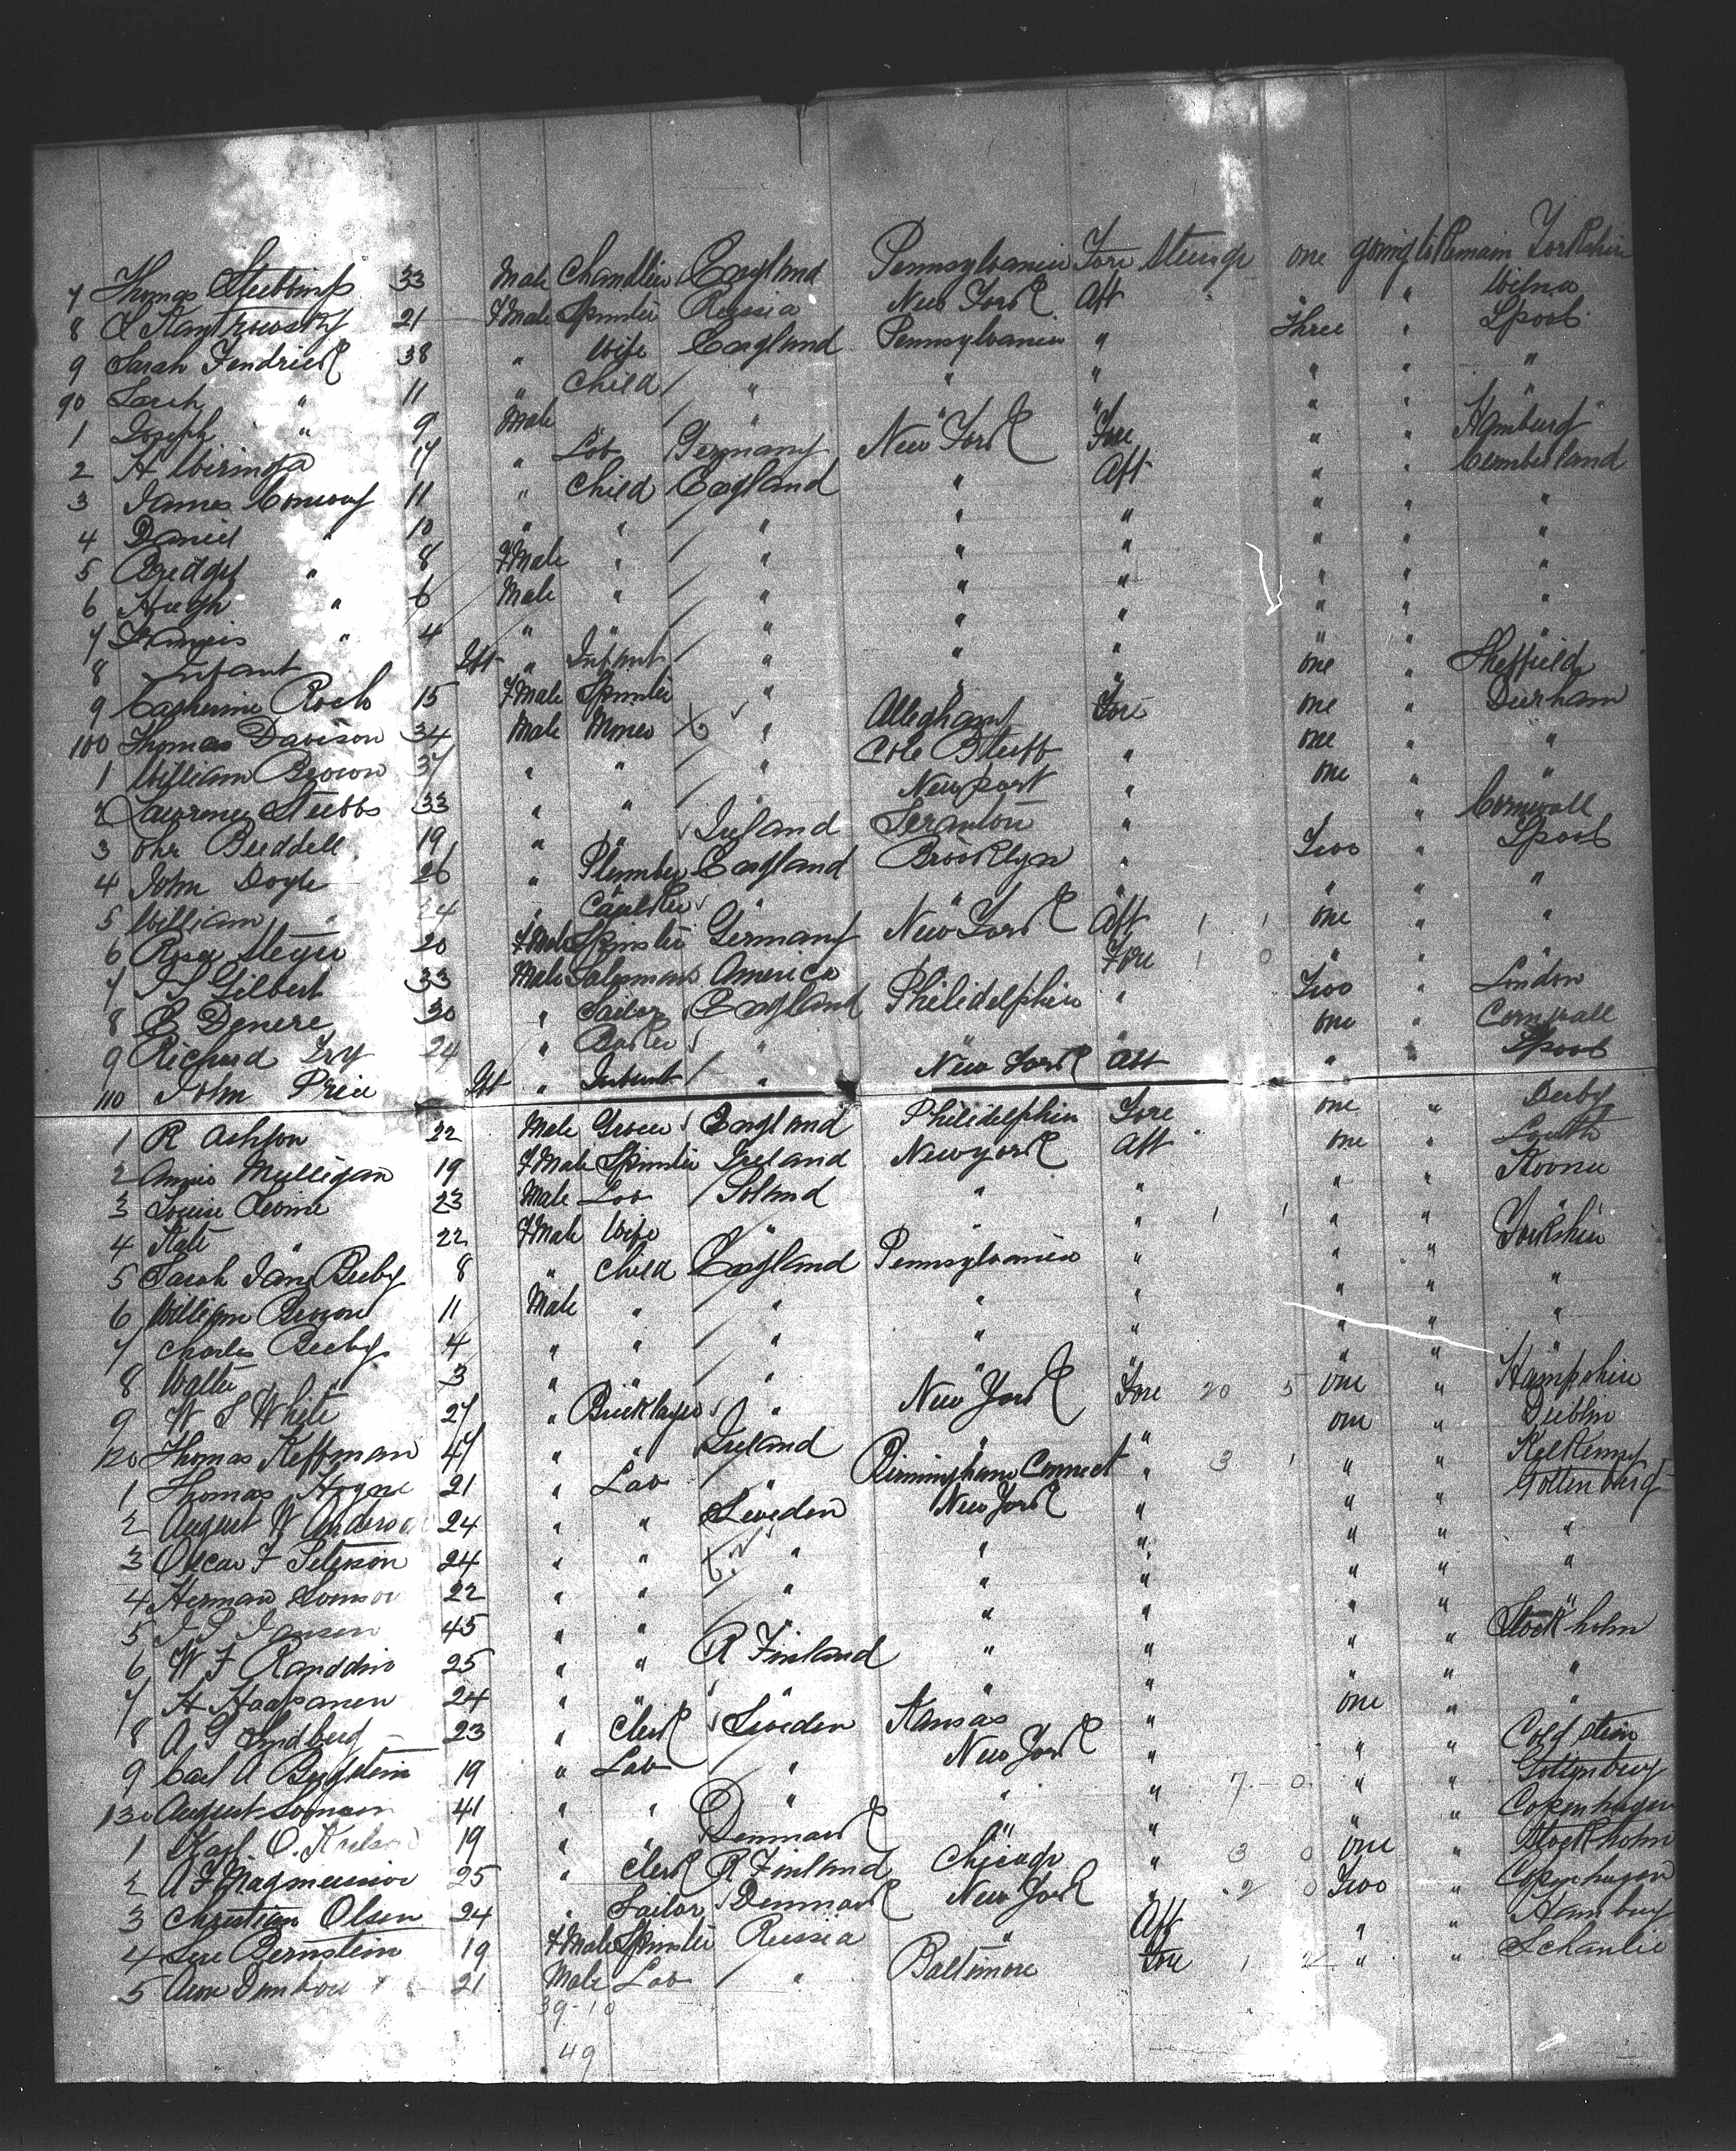 7 Thomas Stebbings 33 Male Chandler England Pennsylvania Fore Steerage one going to Remain Yorkshire
8 21 FMale Spinster Russia New York Aft " " Wilna
9 Sarah Fendrick 38 " Wife England Pennsylvania " Three " Lpool
90 Sarah " 11 " Child " " " " " "
1 Joseph " 9 Male " " " " "
2 H Wiringa 17 " Lab Germany New York Fore " " Hamburg
3 James Conway 11 " Child England " Aft " " Cumberland
4 Daniel " 10 " " " " " " " "
5 Bridget " 8 FMale " " " " " " "
6 Hugh " 6 Male " " " " " " "
7 Francis " 4 " " " " " " " "
8 Infant Inft " Infant " " " " " "
9 Catherine Roch 15 FMale Spinster " " " one " Sheffield
100 Thomas Davison 34 Male Miner " Alleghany Fore one " Durham
1 William Brown 37 " " " Cole Bluff " one " "
2 Lawrence Stubbs 33 " " " Newport " one " "
3 Buddell 19 " " Ireland Scranton " " Cornwall
4 John Doyle 26 " Plumber England Brooklyn " Two " Lpool
5 William " 24 " " " " " " "
6 Rosa Meyer 20 FMale Spinster Germany New York Aft 1 1 one " "
7 Gilbert 33 Male Salesman America " Fore 1 0 " " "
8 Denere 30 " Sailor England Philidelphia " Two " London
9 Richard Fry 24 " " " " one " Cornwall
110 John Price Inft " Infant " New York Aft " " Lpool
1 R Ashton 22 Male Grocer England Philidelphia Fore one " Derby
2 Annie Mulligan 19 FMale Spinster Ireland New York Aft one " Louth
3 Louise Levine 23 Male Lab Poland " " " "
4 Kate " 22 FMale Wife " " " 1 1 " "
5 Sarah Jane Beeby 8 " Child England Pennsylvania " " " Yorkshire
6 William Brown 11 Male " " " " " " "
7 Charles Beeby 4 " " " " " " " "
8 Walter " 3 " " " " " " " "
9 W S White 27 " Bricklayer " New York Fore 20 5 one " Hampshire
120 Thomas Keffman 47 " " Ireland " " one " Dublin
1 Thomas Hogne 21 " Lab " Birmingham Connect " 3 1 " " Kelkenny
2 August W Anderson 24 " " Sweden New York " " " Gottenburg
3 Oscar F Peterson 24 " " " " " " " "
4 Herman 22 " " " " " " " "
5 Jansen 45 " " " " " " " "
6 W F 25 " " R Finland " " " " Stockholm
7 H Haapanen 24 " " " " " " " "
8 A G Lindberg 23 " Clerk Sweden Kansas " one " "
9 Carl A Bergstein 19 " Lab " New York " " "
130 August 41 " " " " " 7 0 " " Gottenburg
1 Karl O. 19 " " Denmark " " " " Copenhagen
2 A F Magnusson 25 " Clerk R Finland Chicago " 3 0 one " Stockholm
3 Christian Olsen 24 " Sailor Denmark New York " 2 0 Two " Copenhagen
4 Bernstein 19 FMale Spinster Russia " Aft " " Hamburg
5 21 Male Lab " Baltimore Fore 1 2 " "
39-10
49